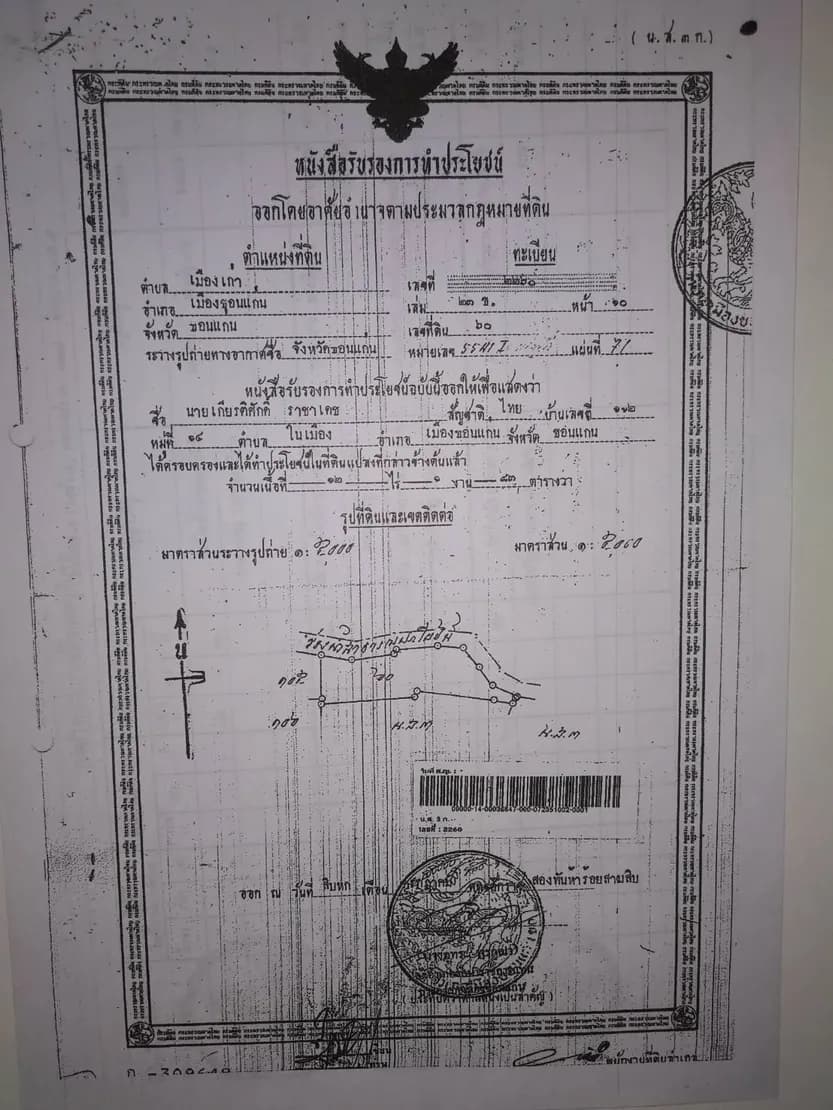 ( น.ส.๓ ก.)
หนังสือรับรองการทำประโยชน์
ออกโดยอาศัยอำนาจตามประมวลกฎหมายที่ดิน
ตำแหน่งที่ดิน ทะเบียน
ตำบล เมืองเก่า เลขที่ ๒๒๖๐
อำเภอ เมืองขอนแกน เล่ม ๒๓ ข. หน้า ๑๐
จังหวัด ขอนแกน เลขที่ดิน ๖๐
ระวางรูปถ่ายทางอากาศชื่อ จังหวัดขอนแกน หมายเลข 5541 I แผ่นที่ 71
หนังสือรับรองการทำประโยชน์ฉบับนี้ออกให้เพื่อแสดงว่า
ชื่อ นายเกียรติศักดิ์ ราชาเดช สัญชาติ ไทย บ้านเลขที่ ๑๑๒
หมู่ที่ ๑๙ ตำบล ในเมือง อำเภอ เมืองขอนแกน จังหวัด ขอนแกน
ได้ครอบครองและได้ทำประโยชน์ในที่ดินแปลงที่กล่าวข้างต้นแล้ว
จำนวนเนื้อที่ ๑๒ ไร่ ๑ งาน ๘๓ ตารางวา
รูปที่ดินและเขตติดต่อ
มาตราส่วนระวางรูปถ่าย ๑ : ๕,000 มาตราส่วน ๑ :
น
น.ส.๓
น.ส.๓
00000-14-00036847-000-072351002-0001
น.ส. 3 ก.
เลขที่ : 2260
ออก ณ วันที่ สิบหก เดือน สองพันห้าร้อยสามสิบ
( ประทับตราตำแหน่งเป็นสำคัญ )